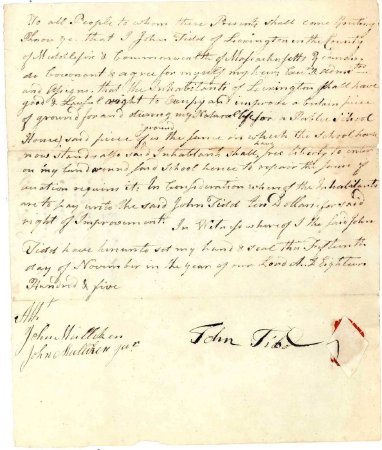 To all People to whom these Presents shall come Greeting
Know ye that I John Tidd of Lexington in the County
of Middlesex & Commonwealth of Massachusetts Yeoman
do Covenant & agree for myself my heirs
and Assigns that the Inhabitants of Lexington shall have
good & Lawful right to occupy and improve a certain piece
of ground for and during my Natural Life for a Public School
House, said piece of ground is the same on which the School house
now stands also said Inhabitants shall have free liberty to enter
on my land round said School house to repair the same if
occation requires it. In Consideration whereof the Inhabitants
are to pay unto the said John Tidd Ten Dollars for said
right of Improvement. In Witness whereof I the said John
Tidd have hereunto set my hand & seal this Fifteenth
day of November in the year of our Lord A.D. Eighteen
Hundred & five
Att
John Mulliken
John Mulliken jur
John Tidd